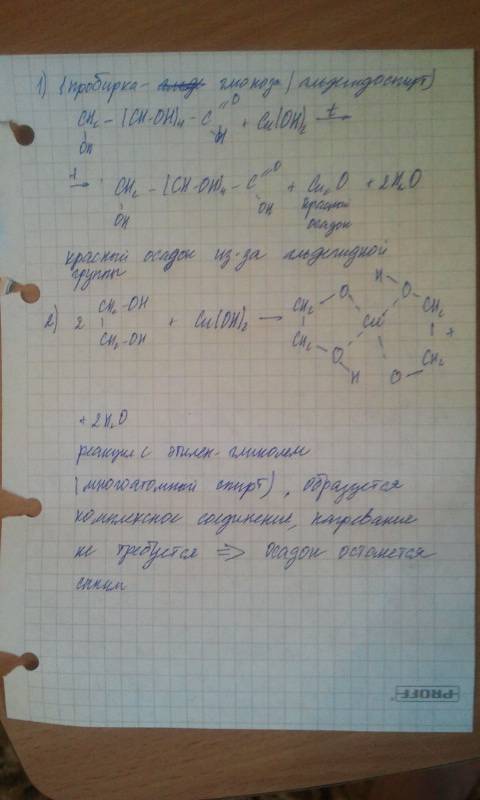 1) 1 пробирка - глюкоза (альдегидоспирт)
CH₂ - (CH-OH)₄ - C =O + Cu(OH)₂ t→
OH H
t→ CH₂ - (CH-OH)₄ - C =O + Cu₂O + 2H₂O
OH OH красный
осадок
красный осадок из-за альдегидной
группы
2) 2 CH₂-OH + Cu(OH)₂ → CH₂ O H O CH₂
CH₂-OH CH₂ O Cu O CH₂ +
H
+ 2H₂O
реакция с этилен-гликолем
(многоатомный спирт), образуется
комплексное соединение, нагревание
не требуется => осадок останется
синим
PROFF